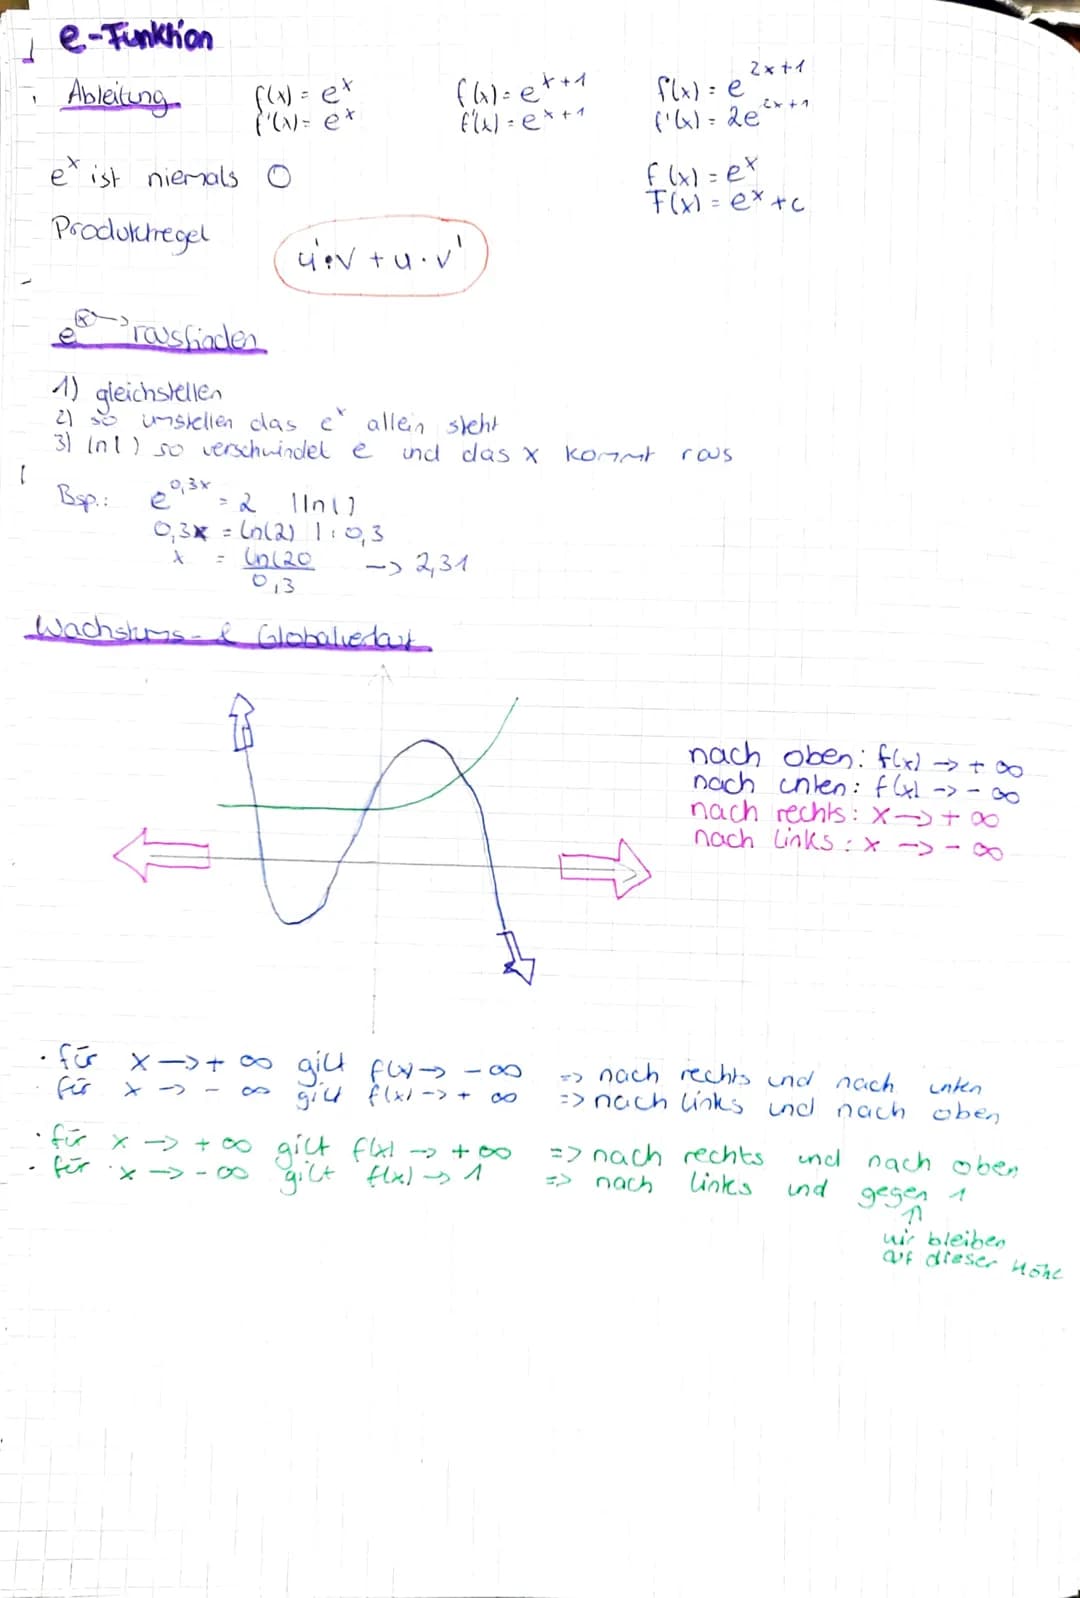 e-Funktion
Ableitung f(x) = e^x f(x) = e^x+1 f(x) = e^2x+1
f'(x) = e^x f'(x) = e^x+1 f'(x) = 2e^2x+1
e^x ist niemals 0 f(x) = e^x
F(x) = e^x + c
Produktregel u'·v + u·v'
e^x → rausfinden
1) gleichstellen
2) so umstellen das e^x allein steht
3) ln( ) so verschwindet e und das x kommt raus
Bsp.: e^0,3x = 2 | ln( )
0,3x = ln(2) | : 0,3
x = ln(20 / 0,3 -> 2,31
Wachstums- &
nach oben: f(x) -> + ∞
nach unten: f(x) -> - ∞
nach rechts: x -> + ∞
nach links: x -> - ∞
· für x -> + ∞ gilt f(x) -> - ∞ => nach rechts und nach unten
für x -> - ∞ gilt f(x) -> + ∞ => nach links und nach oben
· für x -> + ∞ gilt f(x) -> + ∞ => nach rechts und nach oben
· für x -> - ∞ gilt f(x) -> 1 => nach links und gegen 1
↑
wir bleiben
auf dieser Höhe